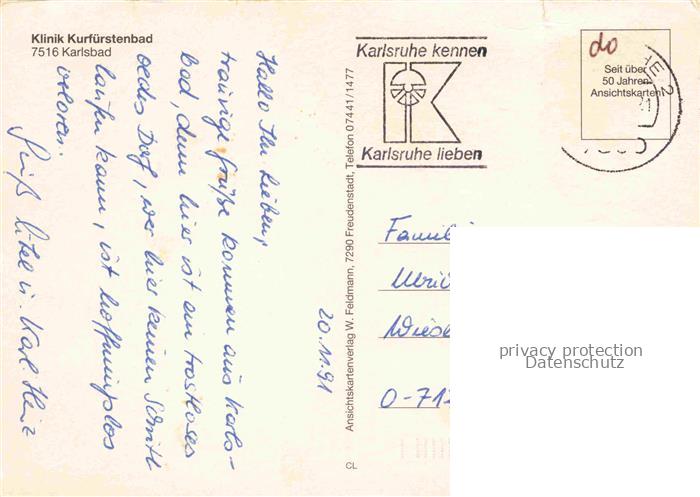 Klinik Kurfürstenbad
7516 Karlsbad
Hallo Ihr Lieben,
traurige Grüße kommen aus Karls-
bad, denn hier ist ein trostloses
oedes Dorf, wer hier keinen Schritt
laufen kann, ist hoffnungslos
verloren.
Gruß u. Karl-Heinz
20.11.91
Ansichtskartenverlag W. Feldmann, 7290 Freudenstadt, Telefon 07441/1477
CL
Karlsruhe kennen
Karlsruhe lieben
do
Seit über
50 Jahren
Ansichtskarten
Famili
Ulric
Wiese
O-712
privacy protection
Datenschutz